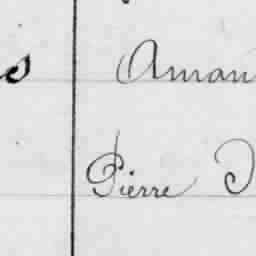 s Aman
Pierre D